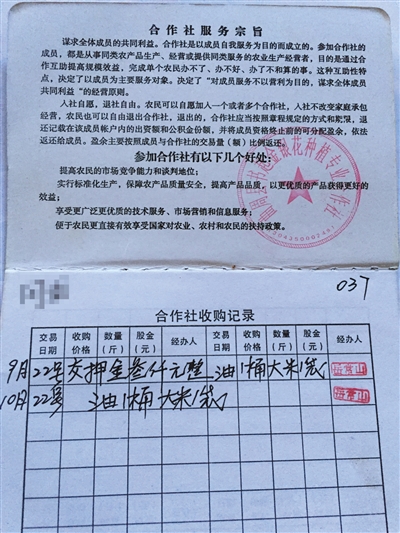 合作社服务宗旨
谋求全体成员的共同利益。合作社是以成员自我服务为目的而成立的。参加合作社的
成员，都是从事同类农产品生产、经营或提供同类服务的农业生产经营者，目的是通过合
作互助提高规模效益，完成单个农民办不了、办不好、办了不和算的事。这种互助性特
点，决定了以成员为主要服务对象。决定了“对成员服务不以营利为目的、谋求全体成员
共同利益”的经营原则。
入社自愿，退社自由。农民可以自愿加入一个或者多个合作社，入社不改变家庭承包
经营，农民也可以自由退出合作社，退出的，合作社应当按照章程规定的方式和期限，退
还记载在该成员帐户内的出资额和公积金份额，并将成员资格终止前的可分配盈余，依法
返还给成员。盈余主要按照成员与合作社的交易量（额）比例返还。
参加合作社有以下几个好处：
提高农民的市场竞争能力和谈判地位；
实行标准化生产，保障农产品质量安全，提高产品品质，以更优质的产品获得更好的
效益；
享受更广泛更优质的技术服务、市场营销和信息服务；
便于农民更直接有效享受国家对农业、农村和农民的扶持政策。
金银花种植专业合作社
037
合作社收购记录
交易日期 收购价格 数量（斤） 股金（元） 经办人 交易日期 收购价格 数量（斤） 股金（元） 经办人
9月22号 交押金叁仟元整 油1桶大米1袋
10月22号 油1桶 大米1袋